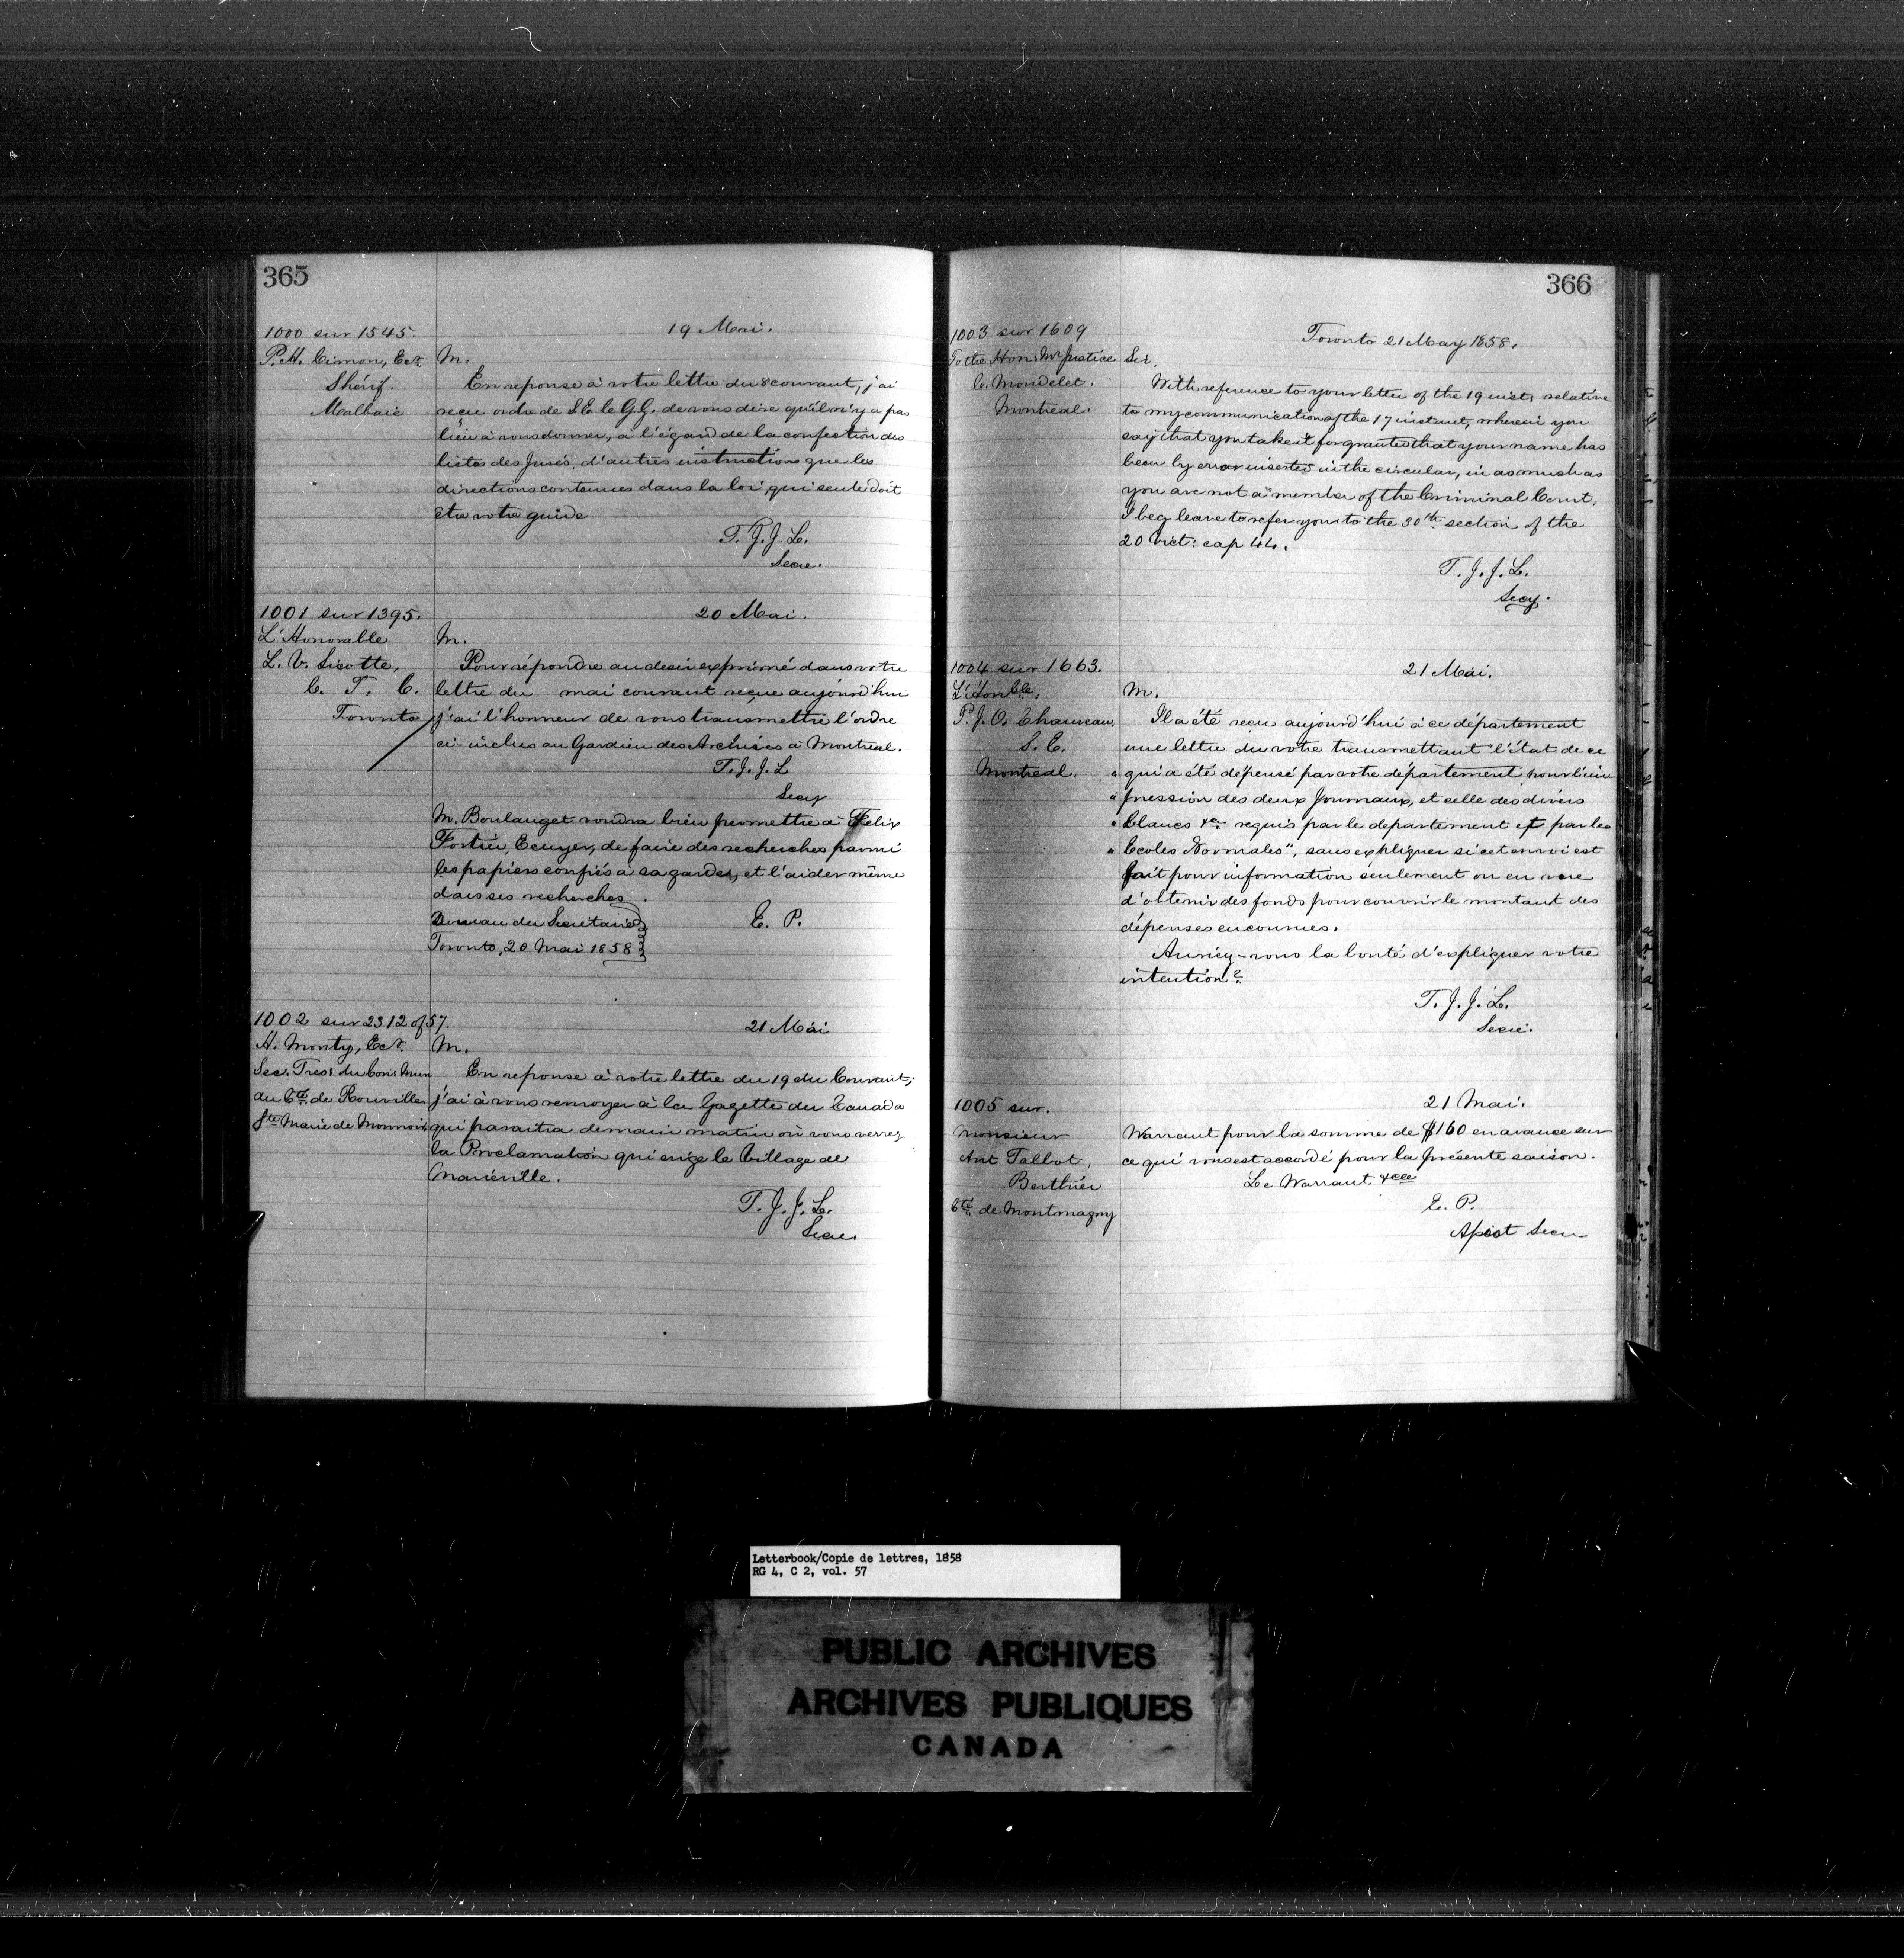 365
1000 sur 1545.
P. H. Cimon, Ecr
Shérif.
Malbaie
19 Mai.
M.
En reponse à votre lettre du 8 courant, j'ai
reçu ordre de S. E. le G. G. de vous dire qu'il n'y a pas
lieu à vous donner, à l'égard de la confection des
listes des Jurés, d'autres instructions que les
directions contenues dans la loi, qui seule doit
être votre guide
T. J. J. L.
Secre.
1001 sur 1395.
L'Honorable
L. V. Sicotte,
C. T. C.
Toronto
20 Mai.
M.
Pour répondre au desir exprimé dans votre
lettre du mai courant reçue aujourd'hui
j'ai l'honneur de vous transmettre l'ordre
ci-inclus au Gardien des Archives à Montreal.
T. J. J. L
Secy
M. Boulanget voudra bien permettre à Felix
Fortier, Ecuyer, de faire des recherches parmi
les papiers confiés à sa garde, et l'aider même
dans ses recherches.
Bureau du Secrétaire
Toronto, 20 Mai 1858
E. P.
1002 sur 2312 of 57.
H. Monty, Ecr.
Sec: Tres: du Con: Mun
du Cté de Rouville
Ste Marie de Monnoir
21 Mai
M.
En reponse à votre lettre du 19 du Courant,
j'ai à vous renvoyer à la Gazette du Canada
qui paraitra demain matin où vous verrez
la Proclamation qui erige le Village de
Marieville.
T. J. J. L.
Secre.
366
1003 sur 1609
To the Hon: Mr Justice
C. Mondelet.
Montreal.
Toronto 21 May 1858.
Sir,
With reference to your letter of the 19 inst, relative
to my communication of the 17 instant, wherein you
say that you take it for granted that your name has
been by error inserted in the circular, in as much as
you are not a "member of the Criminal Court,
I beg leave to refer you to the 30th section of the
20 Vict: cap 44.
T. J. J. L.
Secy.
1004 sur 1663.
L'Honble,
P. J. O. Chauveau,
S. E.
Montreal.
21 Mai.
M.
Il a été reçu aujourd'hui à ce département
une lettre du votre transmettant "l'état de ce
" qui a été dépensé par votre département pour l'im
" pression des deux Journaux, et celle des divers
" blancs &c. requis par le departement et par les
" Ecoles Normales", sans expliquer si cet envoi est
fait pour information seulement ou en vue
d'obtenir des fonds pour couvrir le montant des
dépenses encourues.
Auriez-vous la bonté d'expliquer votre
intention?
T. J. J. L.
Secre.
1005 sur.
Monsieur
Ant Talbot,
Berthier
Cté de Montmagny
21 Mai.
Warrant pour la somme de $160 en avance sur
ce qui vous est accordé pour la présente saison.
Le Warrant &ce
E. P.
Assist Secre
Letterbook/Copie de lettres, 1858
RG 4, C 2, vol. 57
PUBLIC ARCHIVES
ARCHIVES PUBLIQUES
CANADA